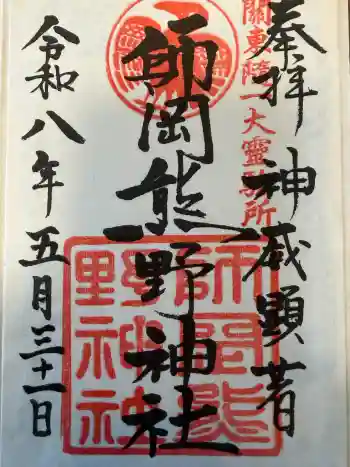 關東随一大靈験所
奉拝 神威顕著
師岡熊野神社
令和八年五月三十一日
師岡熊
野神社